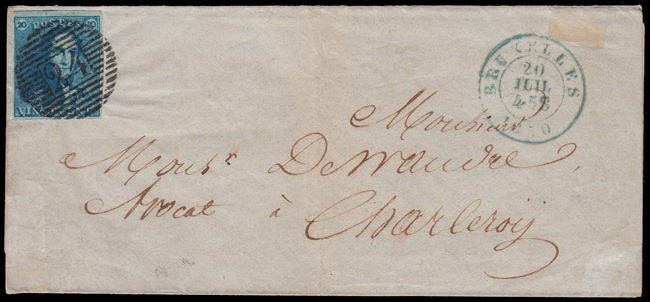 20 POSTES 20
24
BRUXELLES
20
JUIL
1850
Monsieur
Monsr Dewandre,
Avocat à Charleroy